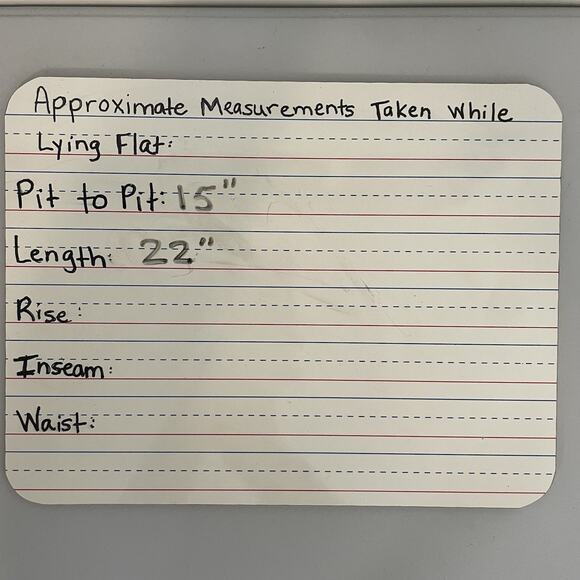 Approximate Measurements Taken While
Lying Flat:
Pit to Pit: 15"
Length: 22"
Rise:
Inseam:
Waist: